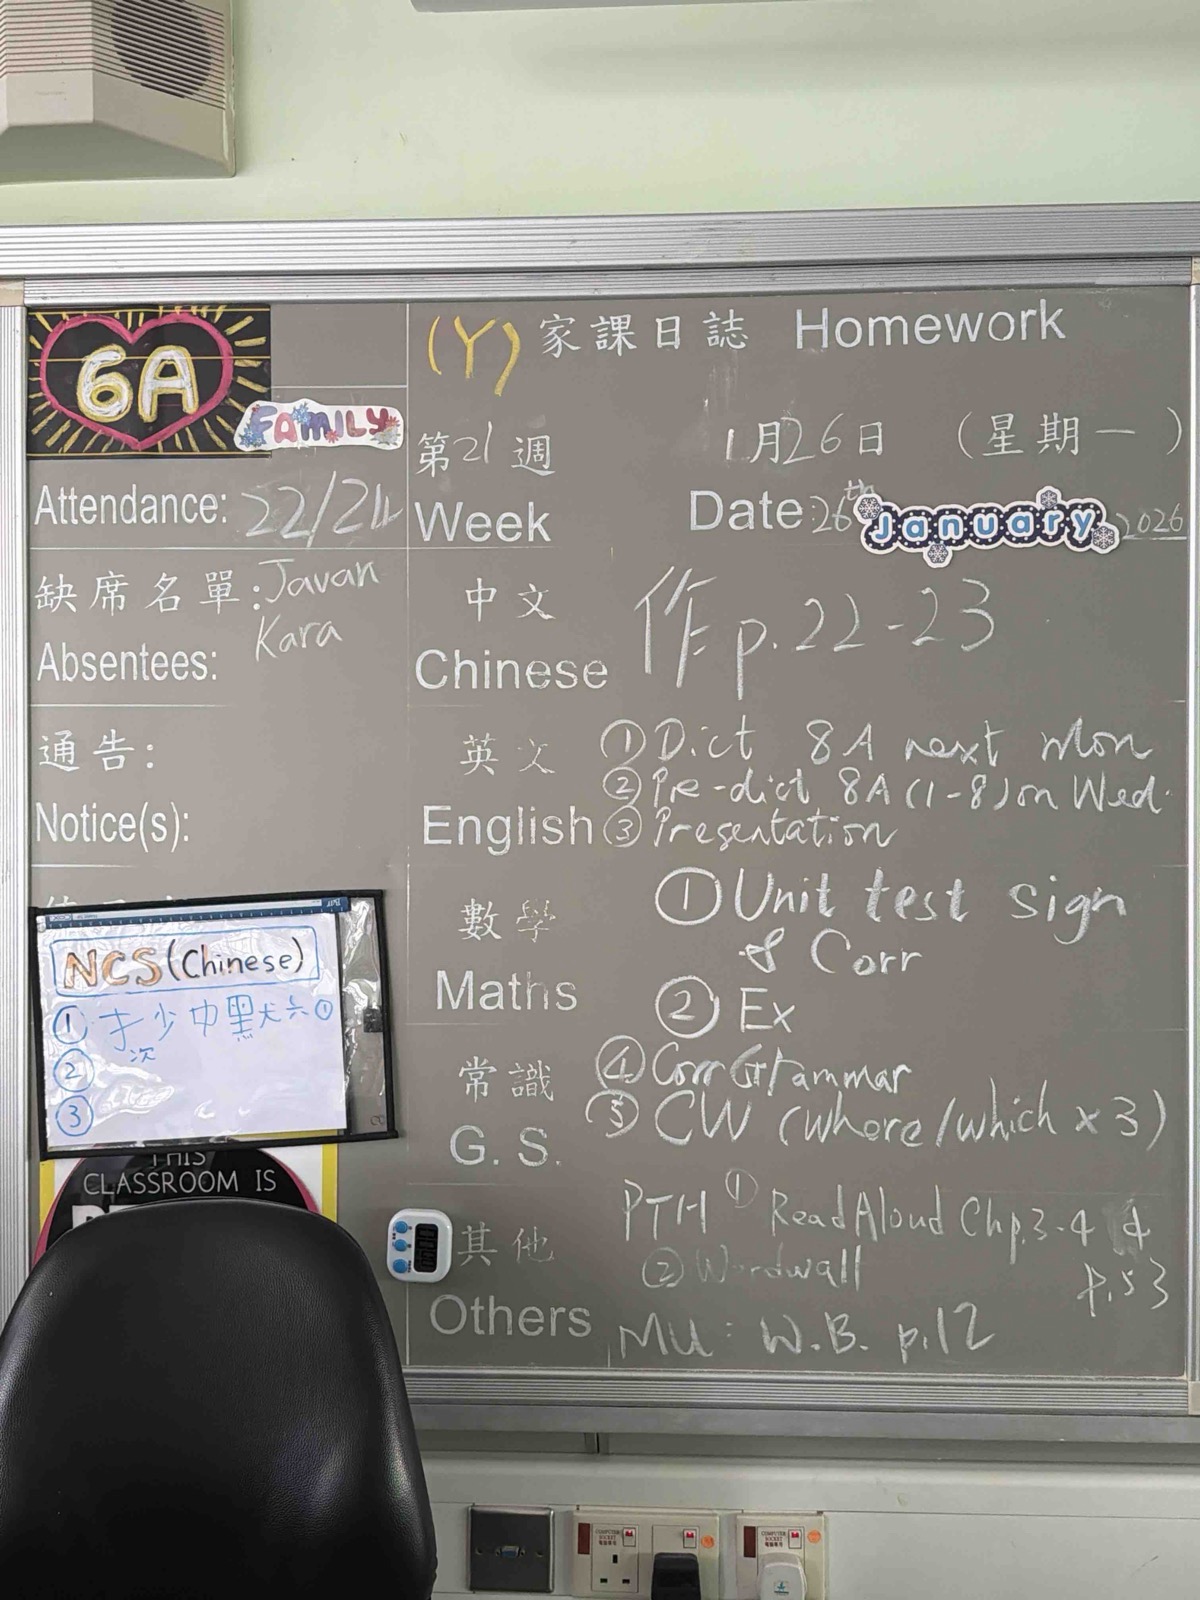 6A
FAMILY
Attendance: 22/24
缺席名單: Javan
Kara
Absentees:
通告:
Notice(s):
NCS (Chinese)
① 才少中黑犬六①
次
②
③
THIS
CLASSROOM IS
(Y) 家課日誌 Homework
第21週 1月26日 (星期一)
Week Date: 26th January 2026
中文 作 p.22-23
Chinese
英文 ① Dict 8A next Mon
② Pre-dict 8A (1-8) on Wed.
English ③ Presentation
數學 ① Unit test sign
& Corr
Maths ② Ex
常識 ④ Corr Grammar
⑤ CW (where/which x 3)
G. S.
其他 PTH ① Read Aloud Ch p.3-4
② Wordwall p.53
Others MU: W.B. p.12
COMPUTER
SOCKET
COMPUTER
SOCKET